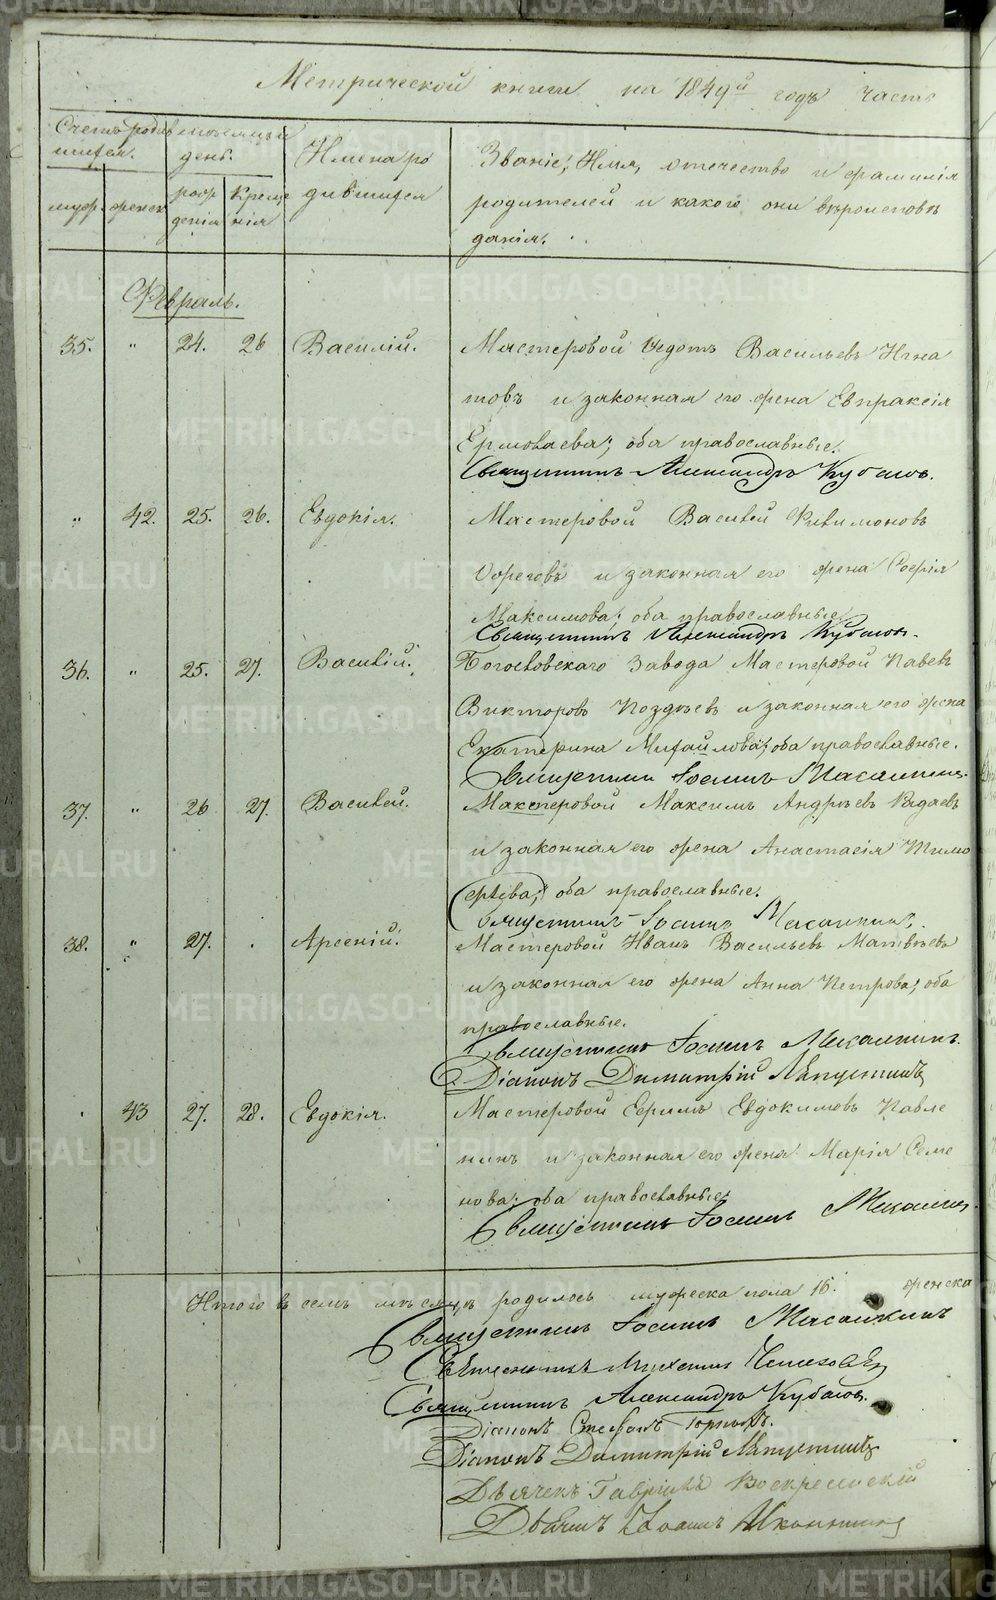 Метрической книги на 1849й годъ часть
Счетъ родив
шихся.
муж. женск
день.
рож
денія
Креще
нія
Имена ро
дившихся
Званіе, Имя, отечество и фамилія
родителей и какого они вѣроисповѣ
данія.
Февраль.
35. " 24. 26 Василій. Мастеровой Ѳедотъ Васильевъ Игна
товъ и законная его жена Евпраксія
Ермолаева; оба православные.
Священникъ Александръ Кубасовъ.
" 42. 25. 26. Евдокія. Мастеровой Василей Филимоновъ
и законная его жена Софія
Максимова; оба православные
Священникъ Александръ Кубасовъ.
36. " 25. 27. Василій. Богословскаго Завода Мастеровой Павелъ
Викторовъ Поздѣевъ и законная его жена
Екатерина Михайлова; оба православные.
Священникъ Іоаннъ
37. " 26 27. Василей. Мастеровой Максимъ Андрѣевъ Кадаевъ
и законная его жена Анастасія Тимо
ѳеева; оба православные.
Священникъ Іоаннъ
38. " 27. . Арсеній. Мастеровой Иванъ Васильевъ Матвѣевъ
и законная его жена Анна Петрова; оба
православные.
Священникъ Іоаннъ
Діаконъ Димитрій Лапустинъ
43 27. 28. Евдокія. Мастеровой Ефимъ Евдокимовъ Павле
нинъ и законная его жена Марія Семе
нова; оба православные
Священникъ Іоаннъ
Итого въ семъ мѣсяцѣ родилось мужеска пола 16. женска
Священникъ Іоаннъ
Священникъ Михаилъ
Священникъ Александръ Кубасовъ.
Діаконъ Стефанъ
Діаконъ Димитрій Лапустинъ
Дьячекъ Гавріилъ Воскресенскій
Дьячекъ Іоаннъ